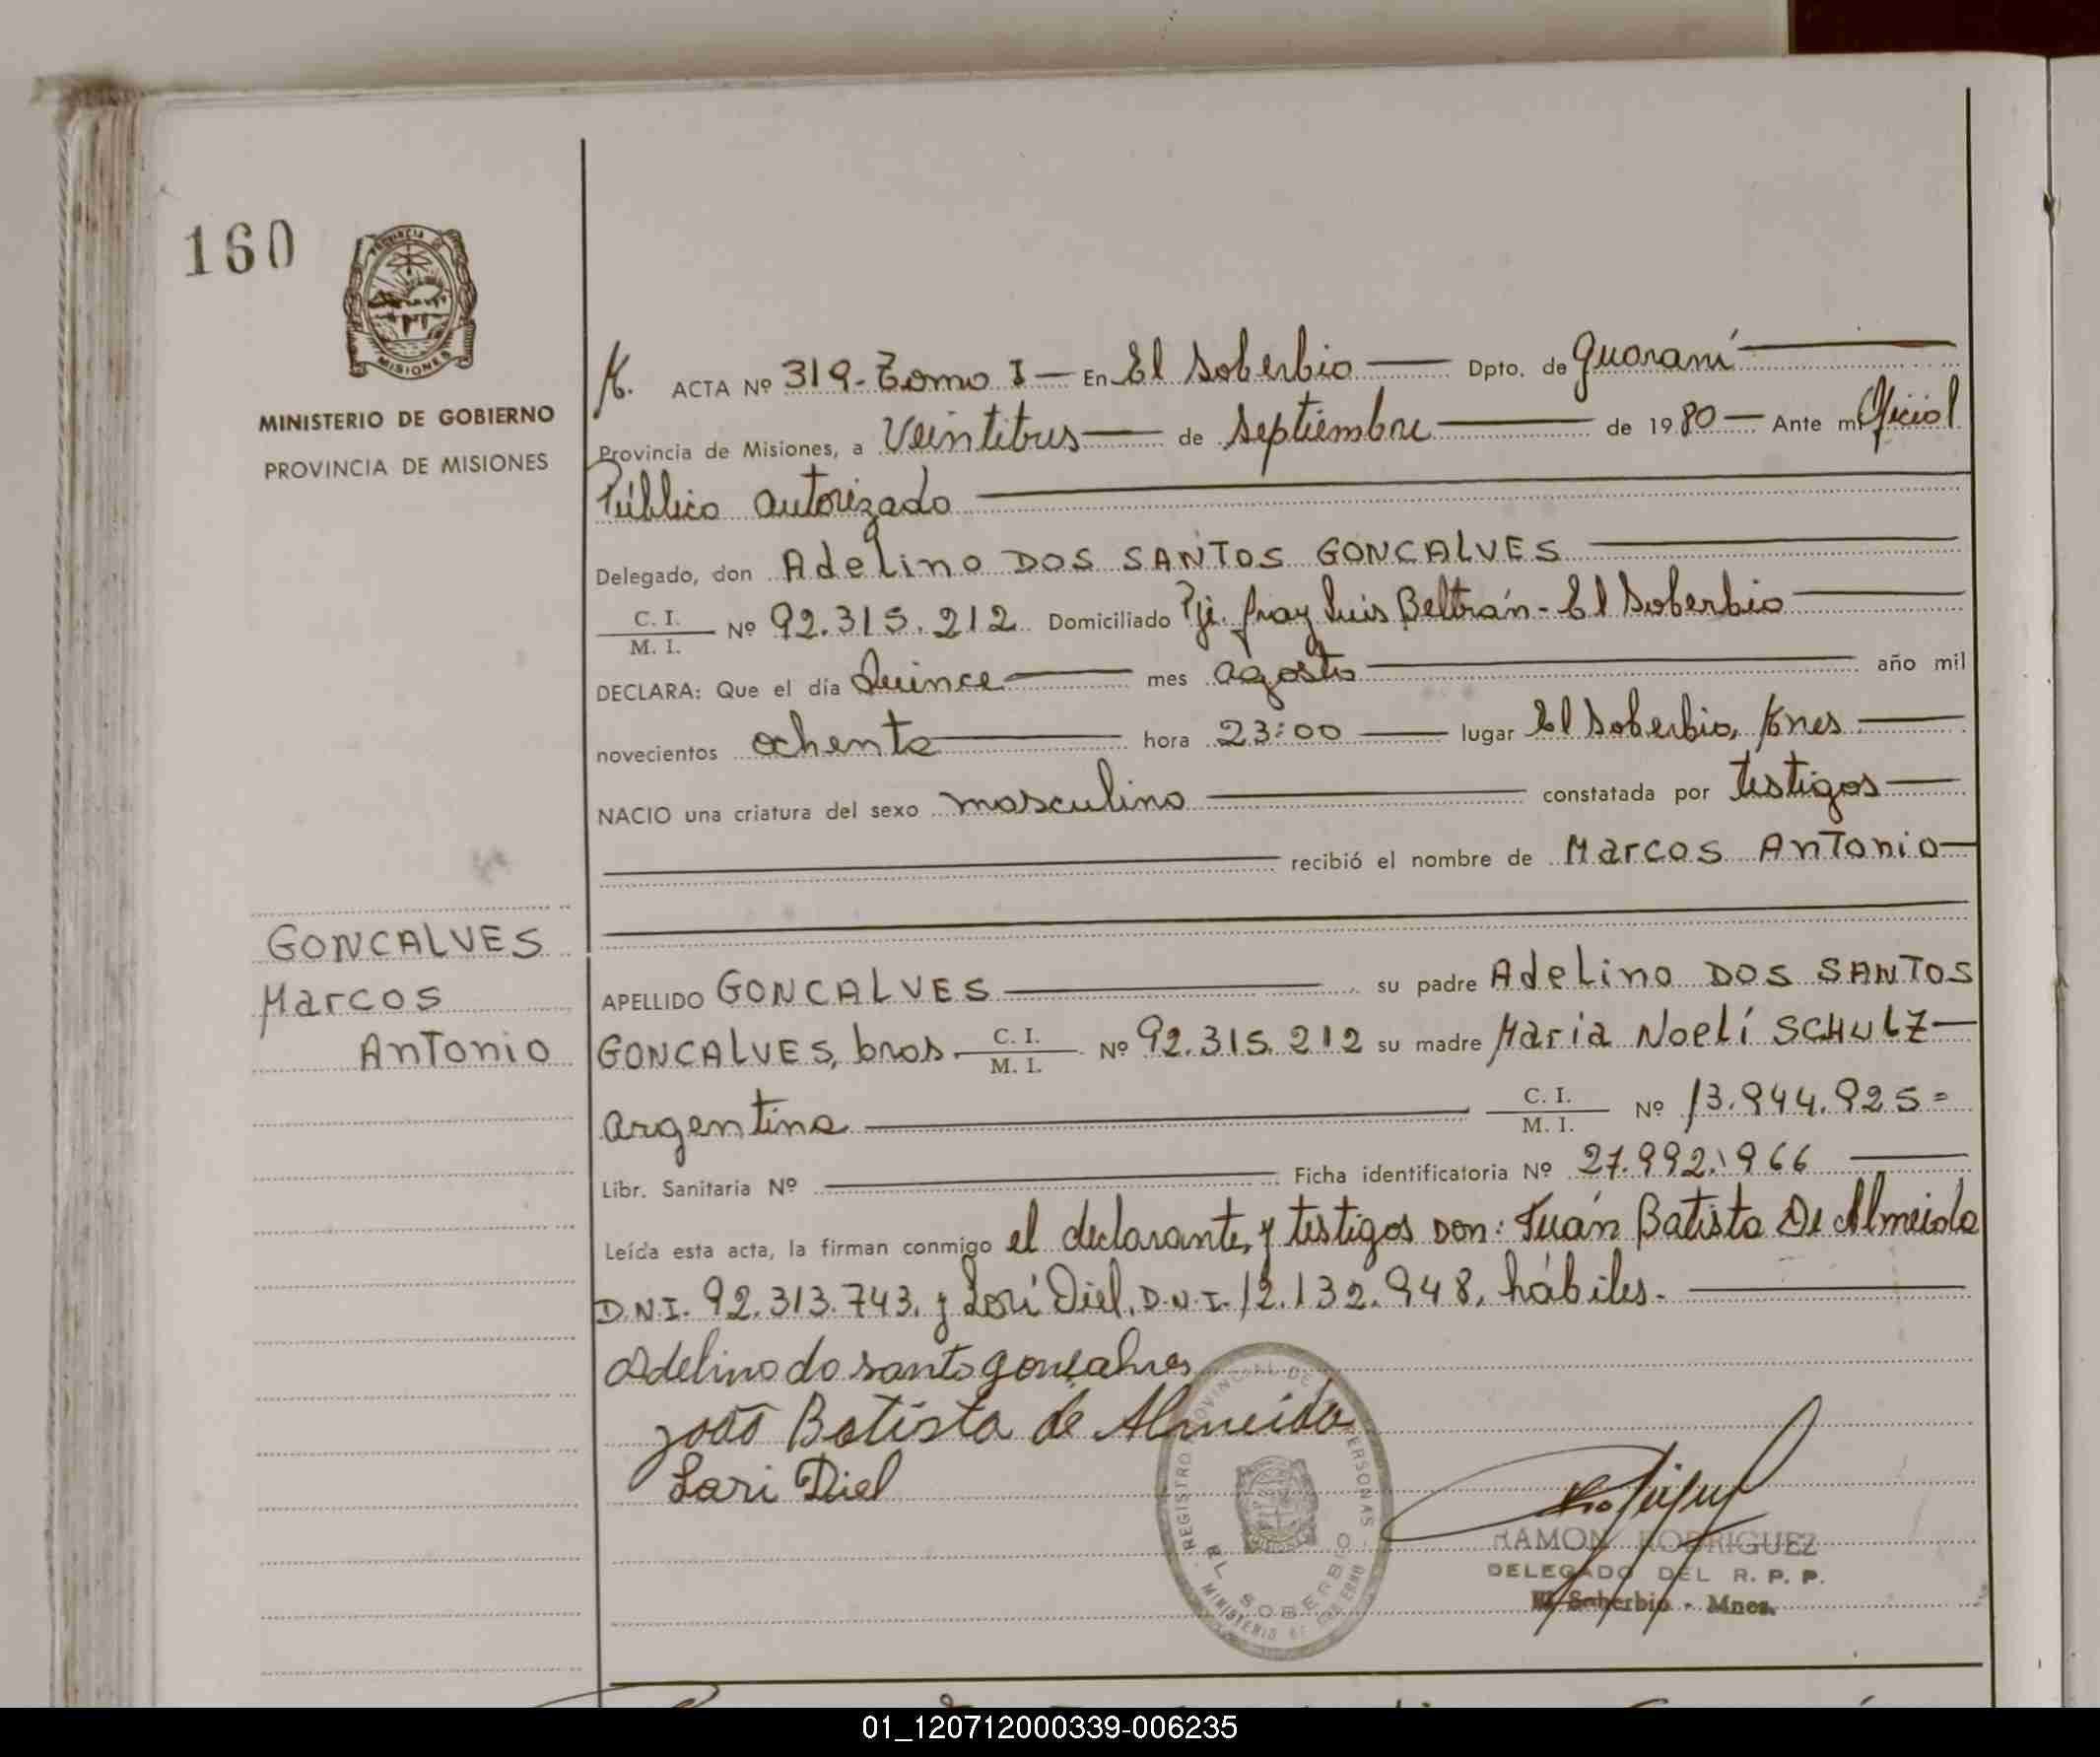 160
PROVINCIA DE
MISIONES
MINISTERIO DE GOBIERNO
PROVINCIA DE MISIONES
GONCALVES
Marcos
Antonio
ACTA Nº 319- Tomo I — En El Soberbio — Dpto. de Guaraní
Provincia de Misiones, a Veintitres — de Septiembre — de 1980 — Ante mí Oficial
Público autorizado
Delegado, don Adelino DOS SANTOS GONCALVES
C. I.
M. I. Nº 92.315.212 Domiciliado Pje. fray Luis Beltrán - El Soberbio
DECLARA: Que el día Quince — mes agosto — año mil
novecientos ochenta — hora 23:00 — lugar El Soberbio, Mnes
NACIO una criatura del sexo masculino — constatada por testigos —
recibió el nombre de Marcos Antonio —
APELLIDO GONCALVES — su padre Adelino DOS SANTOS
GONCALVES, bras. C. I. M. I. Nº 92.315.212 su madre Maria Noelí SCHULZ —
argentina — C. I. M. I. Nº 13.944.925=
Libr. Sanitaria Nº — Ficha identificatoria Nº 27.992.966 —
Leída esta acta, la firman conmigo el declarante, y testigos Don: Juán Batista De Almeida
D.N.I. 92.313.743. y Lorí Diel, D.N.I. 12.132.948, hábiles. —
Adelino do santo gonçalves
João Batista de Almeida
Lari Diel
REGISTRO PROVINCIAL DE LAS PERSONAS
EL SOBERBIO
MINISTERIO DE GOBIERNO
RAMON RODRIGUEZ
DELEGADO DEL R. P. P.
El Soberbio - Mnes.
01_120712000339-006235